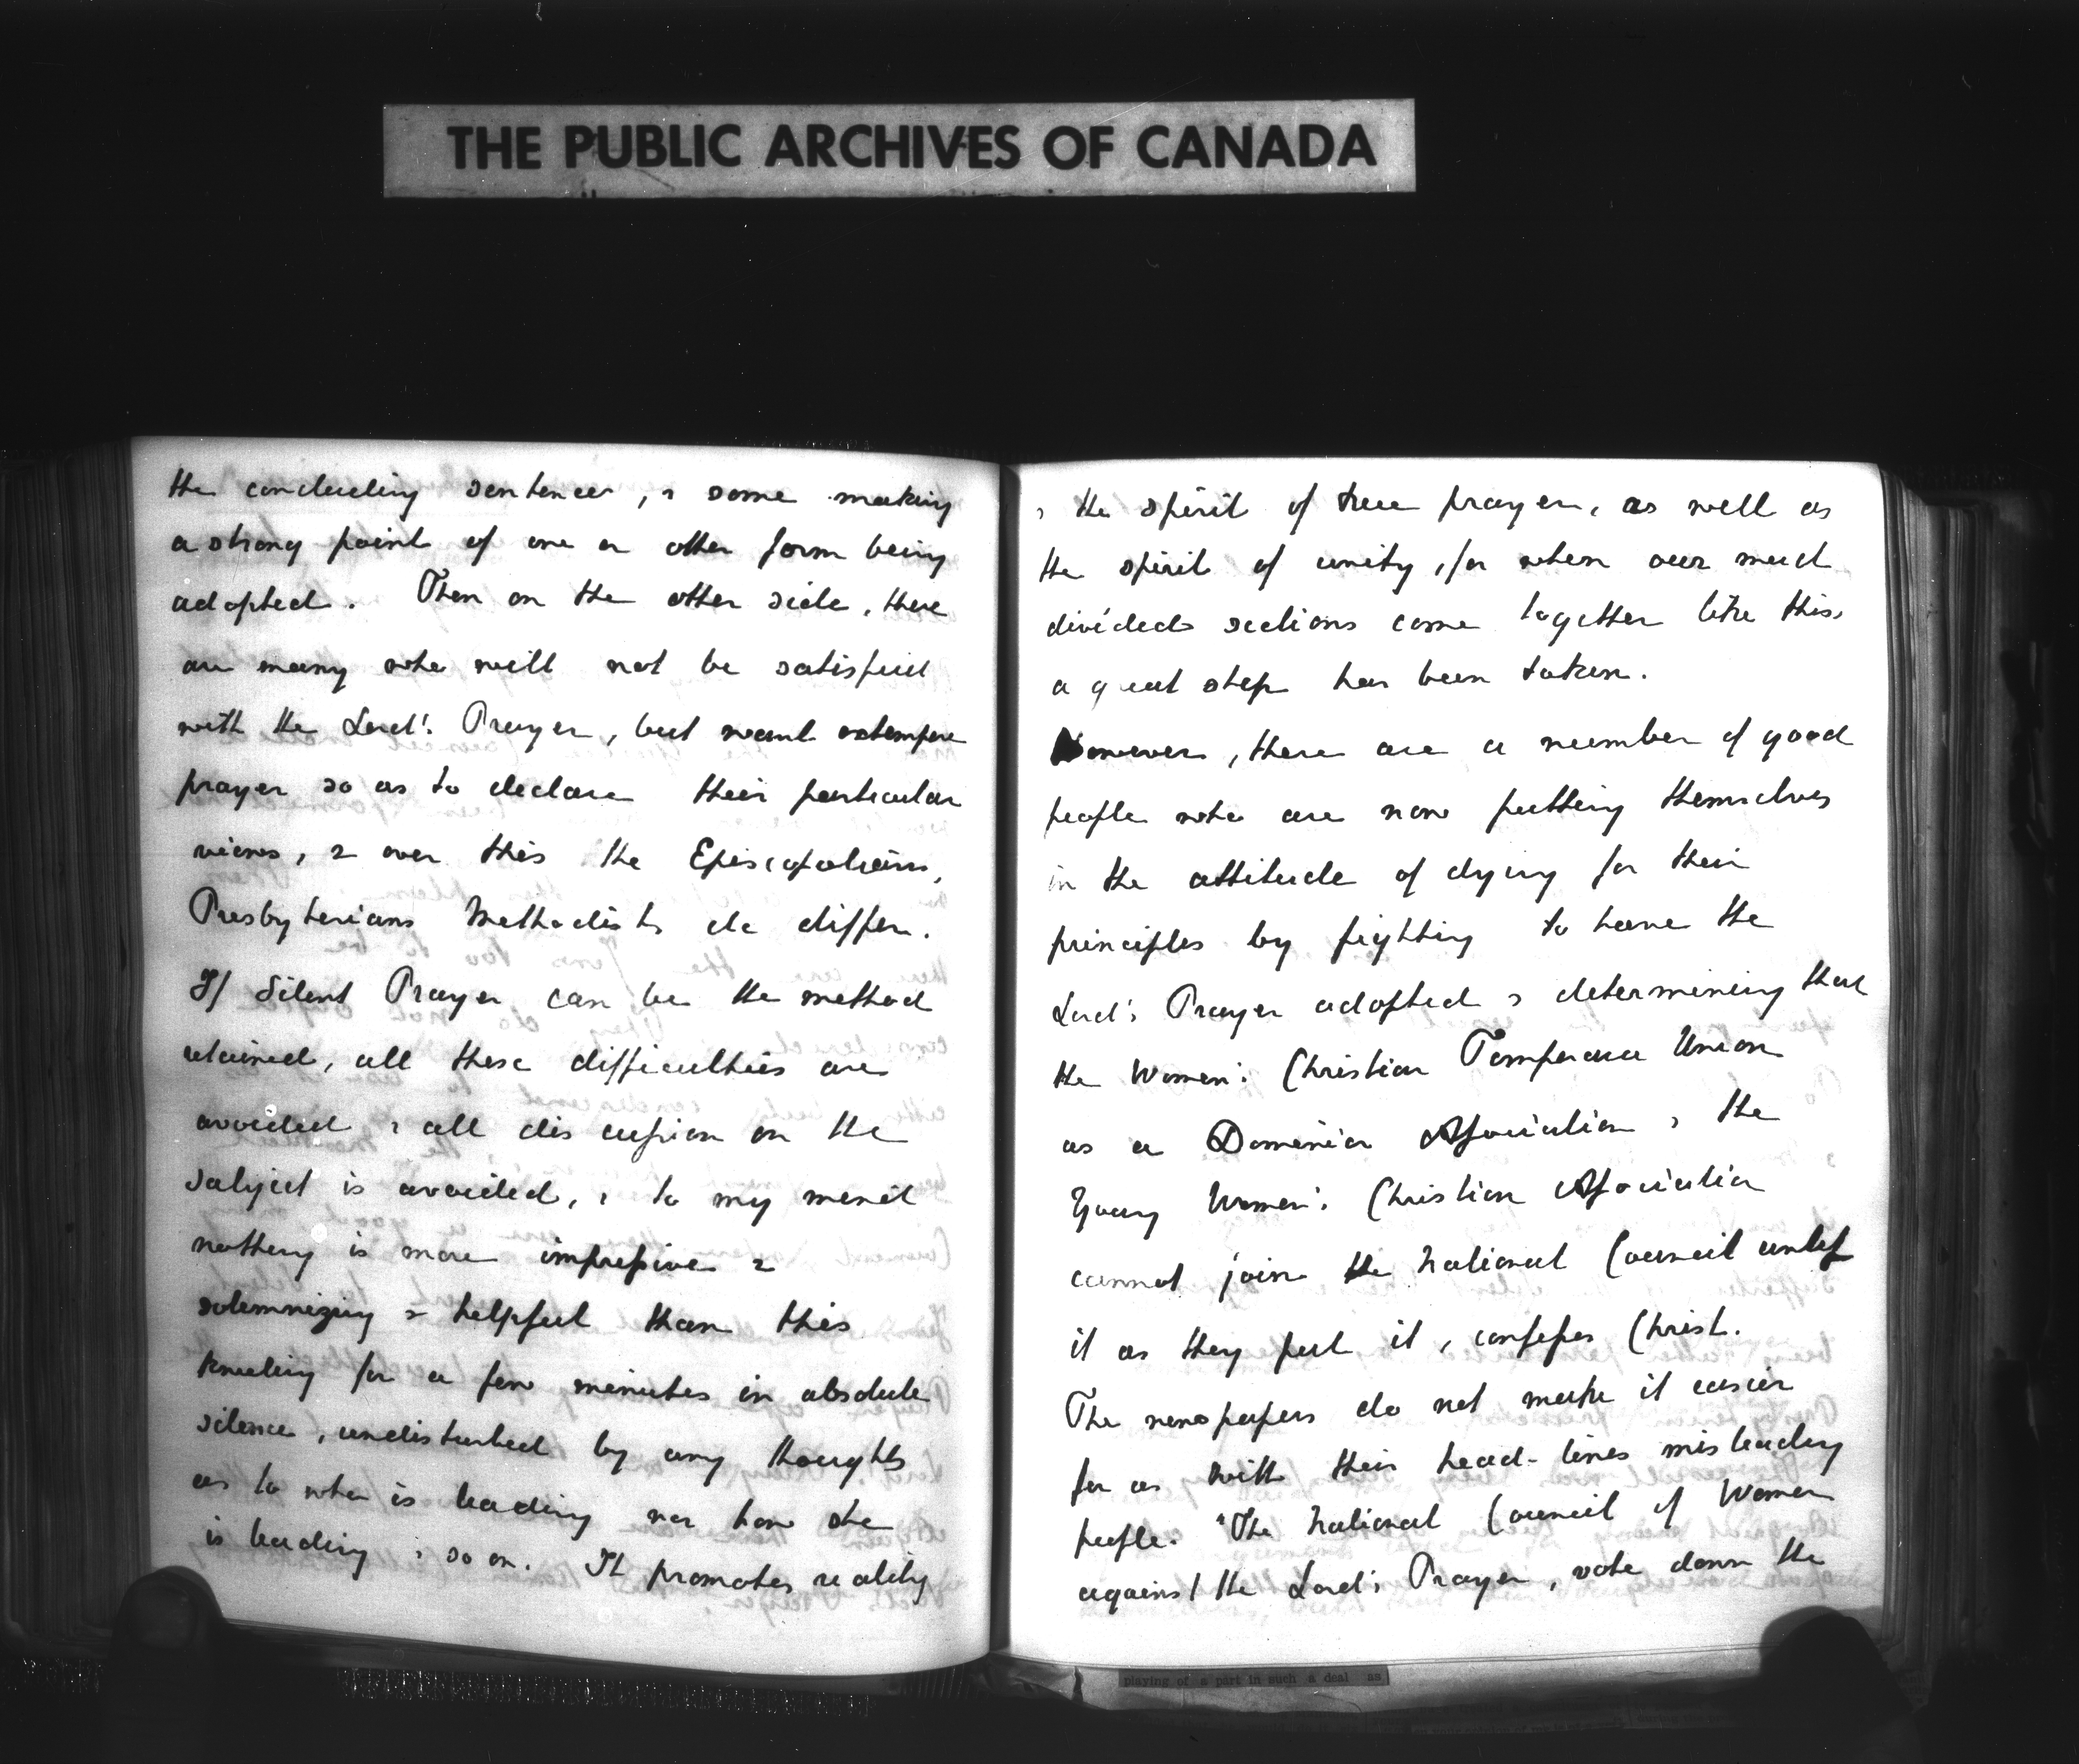 THE PUBLIC ARCHIVES OF CANADA
the concluding sentences, & some making
a strong point of one or other form being
adopted. Then on the other side, there
are many who will not be satisfied
with the Lord's Prayer, but want extempore
prayer so as to declare their particular
views, & over this the Episcopalians,
Presbyterians Methodists do differ.
If Silent Prayer can be the method
retained, all these difficulties are
avoided & all discussion on the
subject is avoided, & to my mind
nothing is more impressive &
solemnizing & helpful than this
kneeling for a few minutes in absolute
silence, undisturbed by any thoughts
as to who is leading nor how she
is leading & so on. It promotes reality
& the spirit of true prayer, as well as
the spirit of unity, for when our much
divided sections come together like this,
a great step has been taken.
However, there are a number of good
people who are now putting themselves
in the attitude of dying for their
principles by fighting to have the
Lord's Prayer adopted & determining that
the Women's Christian Temperance Union
as a Dominion Association & the
Young Women's Christian Association
cannot join the National Council unless
it as they put it, confesses Christ.
The newspapers do not make it easier
for as with their head-lines misleading
people. "The National Council of Women
against the Lord's Prayer, vote down the
playing of a part in such a deal as